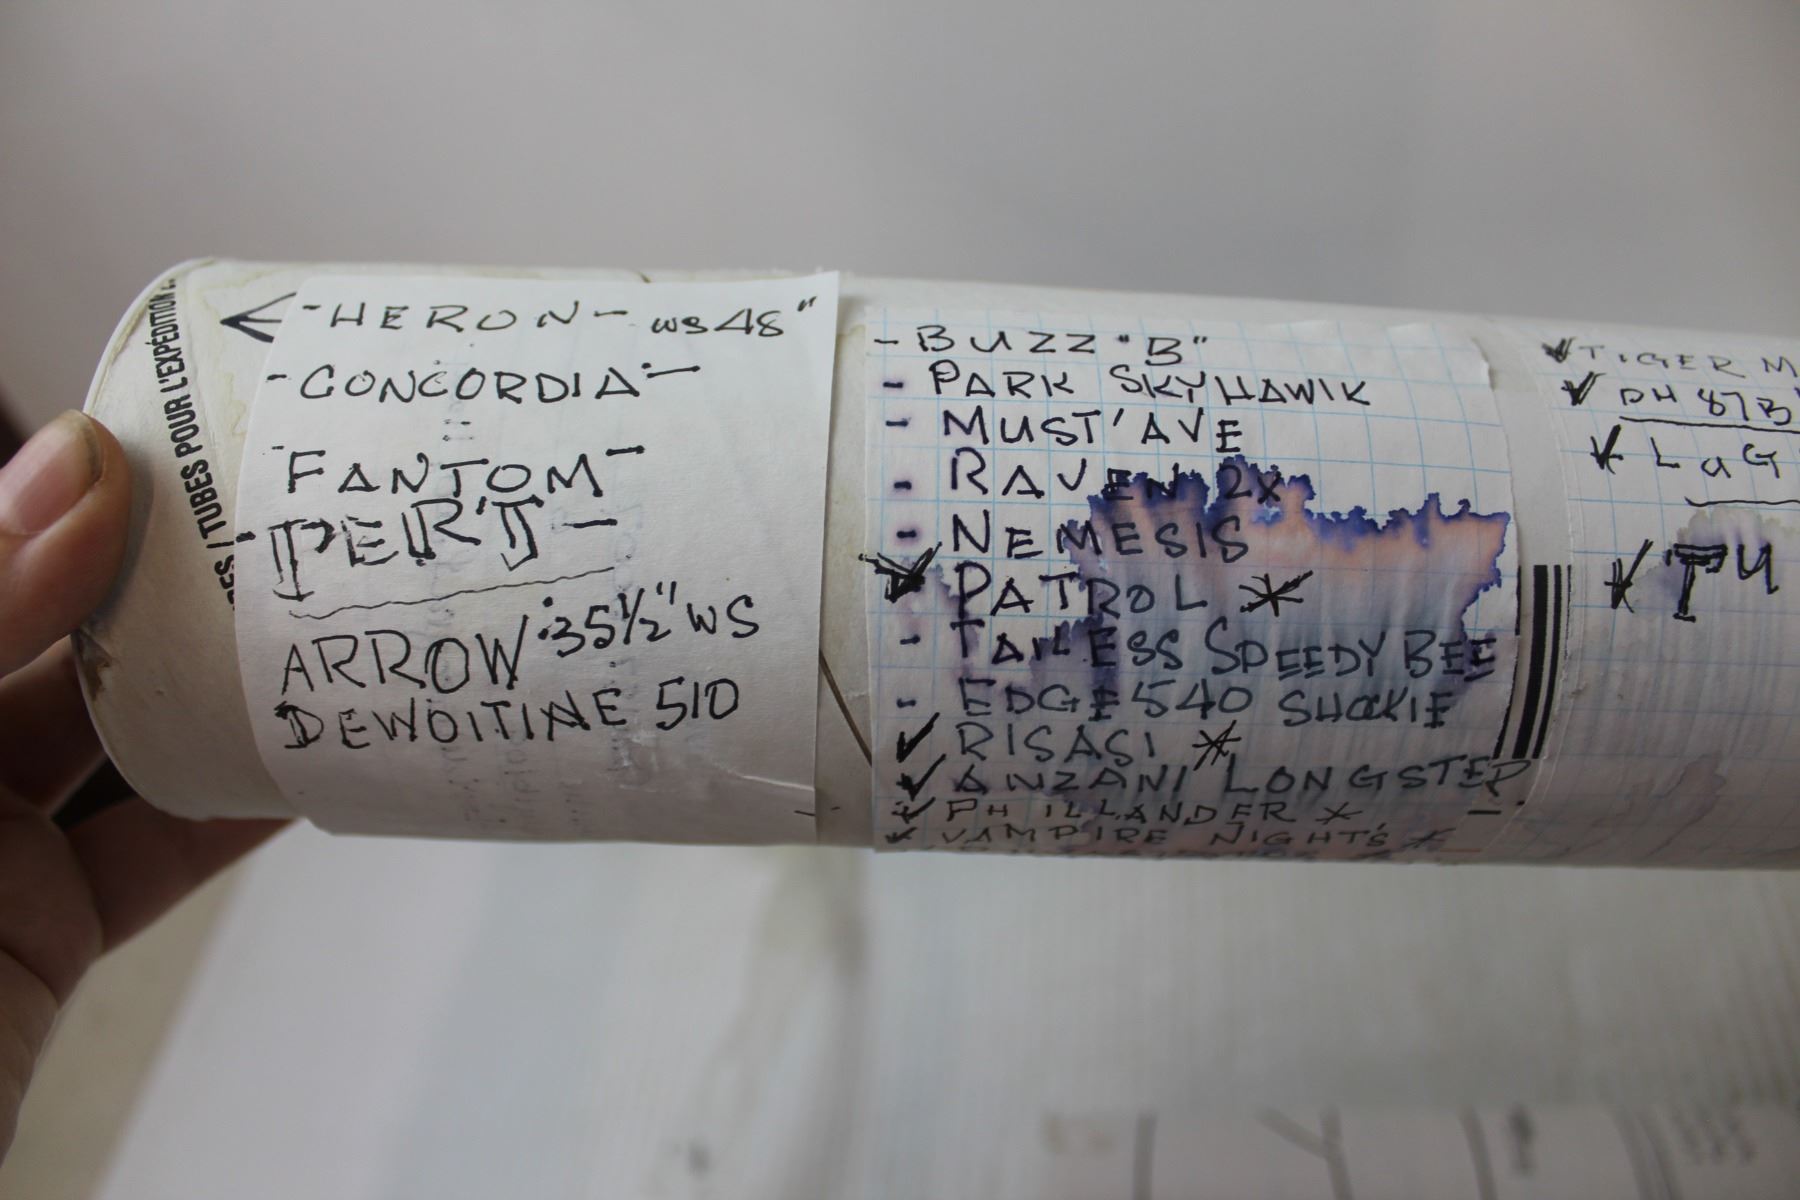 ES / TUBES POUR L'EXPÉDITION
- HERON - WS 48"
- CONCORDIA -
- FANTOM -
- PERT -
ARROW : 35 1/2" WS
DEWOITINE 510
- BUZZ "B"
- PARK SKYHAWK
- MUST'AVE
- RAVEN 2X
- NEMESIS
✓ PATROL *
- TAILESS SPEEDY BEE
- EDGE 540 SHOCKIE
✓ RISASI *
✓ ANZANI LONGSTER
✓ PHILLANDER *
✓ VAMPIRE NIGHT'S *
✓ TIGER M
✓ DH 87B
✓ LaG